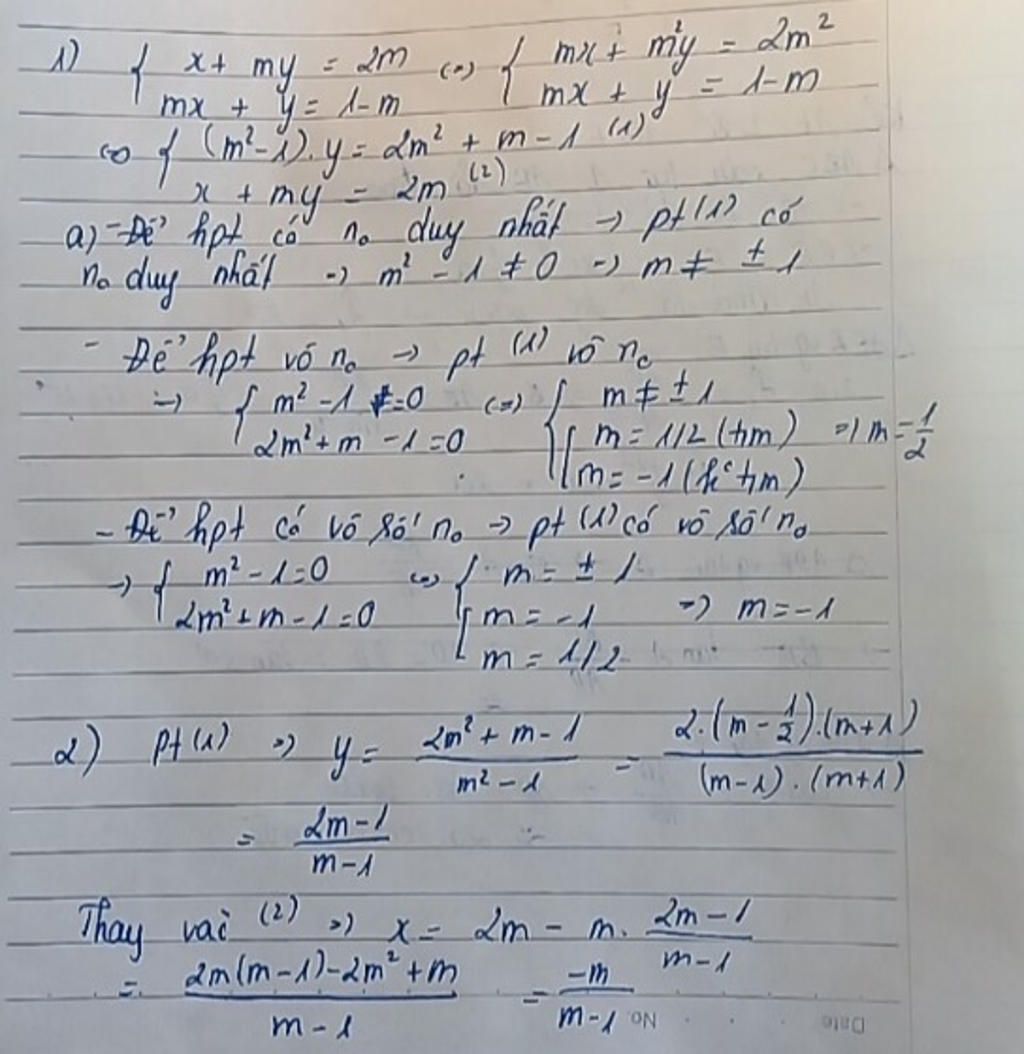 1) { x + my = 2m (=) { mx + m²y = 2m²
mx + y = 1-m mx + y = 1-m
(=) { (m²-1).y = 2m² + m - 1 (1)
x + my = 2m (2)
a) - Để hpt có n₀ duy nhất → pt (1) có
n₀ duy nhất → m² - 1 ≠ 0 → m ≠ ± 1
- Để hpt vô n₀ → pt (1) vô n₀
→ { m² - 1 = 0 (=) { m ≠ ± 1
2m² + m - 1 = 0 [ m = 1/2 (tm) => m = 1/2
m = -1 (kᶜ tm)
- Để hpt có vô số n₀ → pt (1) có vô số n₀
→ { m² - 1 = 0 (=) { m = ± 1
2m² + m - 1 = 0 [ m = -1 => m = -1
m = 1/2
2) pt (1) => y = (2m² + m - 1)/(m² - 1) = (2.(m - 1/2).(m+1))/((m-1).(m+1))
= (2m - 1)/(m - 1)
Thay vaò (2) => x = 2m - m. (2m - 1)/(m - 1)
= (2m(m-1) - 2m² + m)/(m - 1) = (-m)/(m - 1)
No. Date